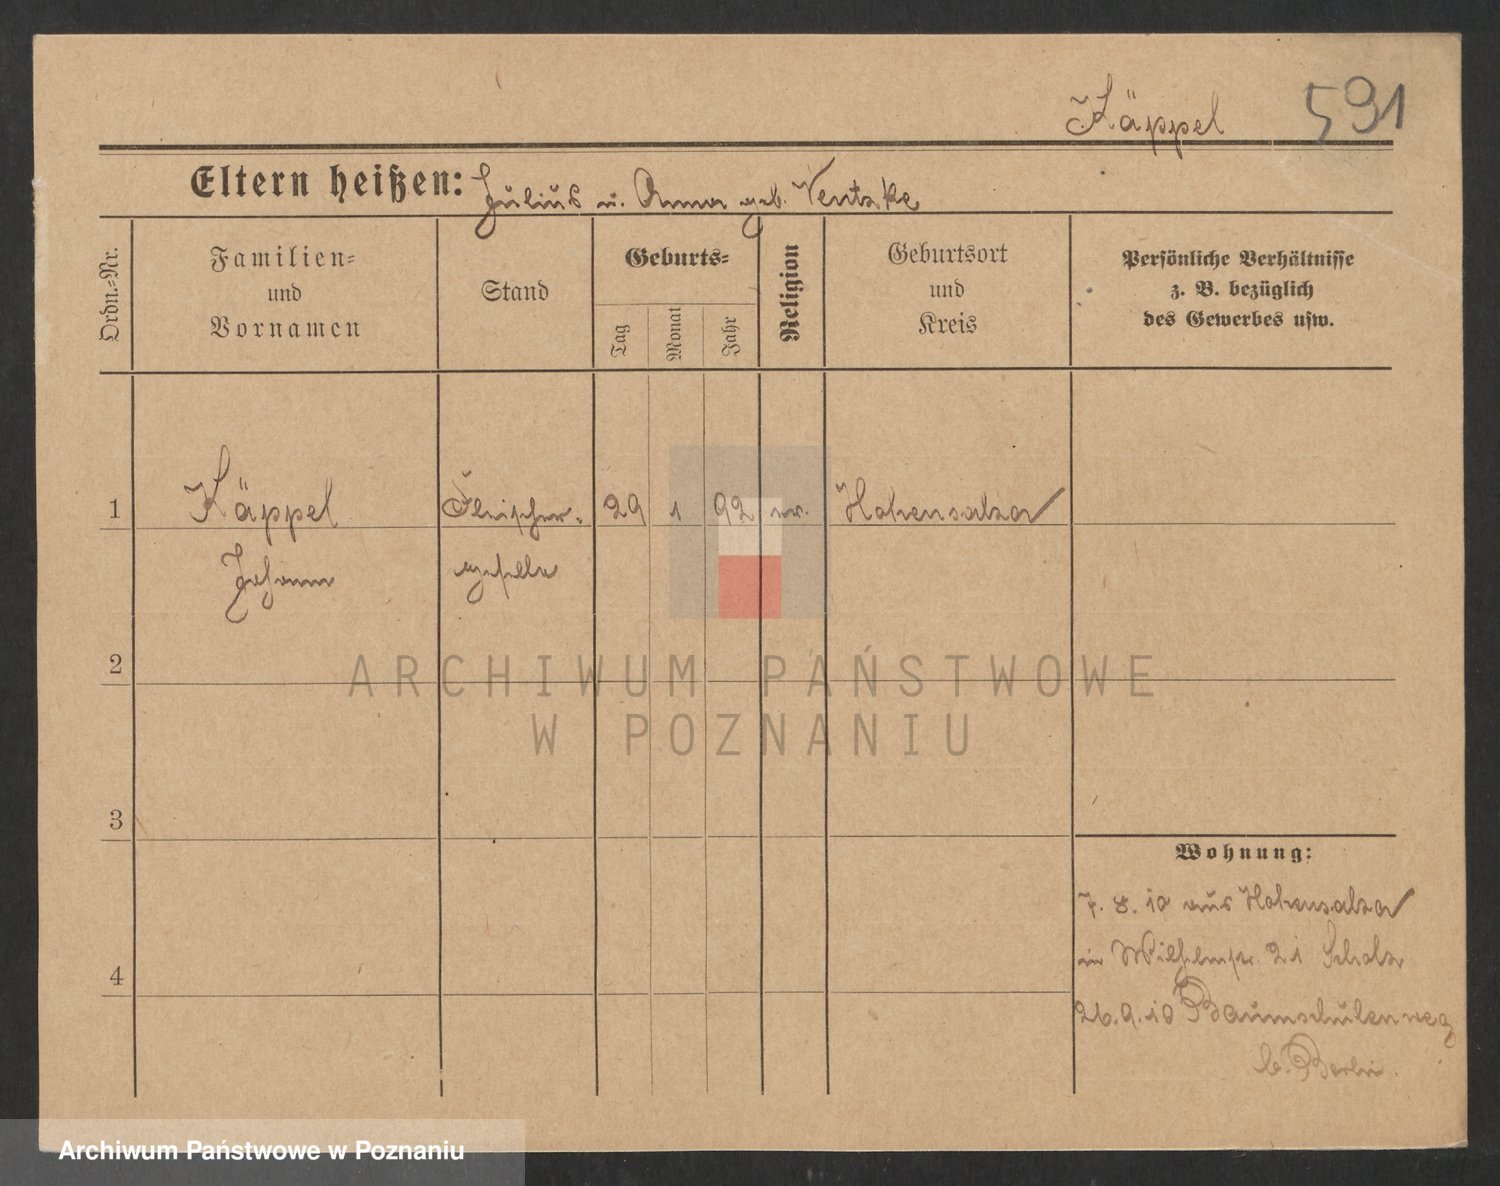 Käppel 591
Eltern heißen: Julius u. Anna geb. Ventzke
Ordn.-Nr.
Familien-
und
Vornamen
Stand
Geburts-
Tag
Monat
Jahr
Religion
Geburtsort
und
Kreis
Persönliche Verhältnisse
z. B. bezüglich
des Gewerbes usw.
1 Käppel Fleischer- 29 1 92 ev. Hohensalza
Johann geselle
2
3
4
Wohnung:
7. 8. 10 aus Hohensalza
in Wilhelmstr. 21 Scholz
26. 9. 10 Baumschulenweg
b. Berlin.
ARCHIWUM PAŃSTWOWE
W POZNANIU
Archiwum Państwowe w Poznaniu